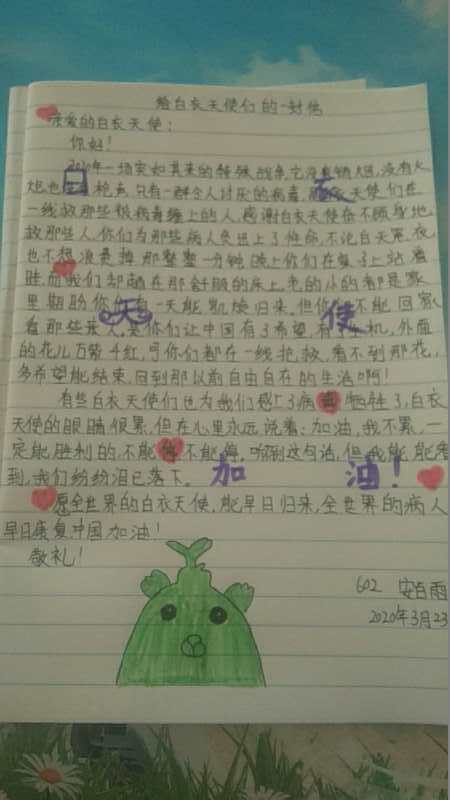 给白衣天使们的一封信
亲爱的白衣天使：
你好！
2020年一场突如其来的特殊战争,它没有硝烟,没有火
炮也 枪声,只有一群令人讨厌的病毒, 衣天使们在
一线救那些被病毒缠上的人,感谢白衣天使奋不顾身地
救那些人,你们为那些病人负出上了性命,不论白天黑夜
也不想浪费掉那整整一分钟,晚上你们在凳子上站着
睡,而我们却躺在那舒服的床上,老的小的都是家
里期盼你 有一天能凯旋归来,但你 不能回家
看那些亲人,是你们让中国有了希望,有 生机,外面
的花儿万紫千红,可你们都在一线抢救,看不到那花,
多希望能结束,回到那以前自由自在的生活啊!
有些白衣天使们也为我们感上了病毒牺牲了,白衣
天使的眼睛很累,但在心里永远说着:加油,我不累,一
定能胜利的,不能停不能停,听到这句话,但我能,能看
到,我们纷纷泪已落下。
愿全世界的白衣天使,能早日归来,全世界的病人
早日康复,中国加油!
敬礼!
白
衣
天
使
加
油!
602 安白雨
2020年3月23